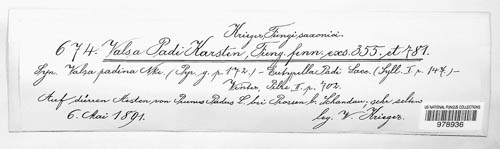 Krieger, Fungi saxonici.
674. Valsa Padi Karsten, Fung. fenn. exs. 355. et 781.
Syn. Valsa padina Nke. (Pyr. g. p. 172.) – Eutypella Padi Sacc. (Syll. I. p. 147.) –
Winter, Pilze II. p. 702.
Auf dürren Aesten von Prunus Padus L. bei Prossen b. Schandau, sehr selten
6. Mai 1891. leg. W. Krieger.
US NATIONAL FUNGUS COLLECTIONS
978936